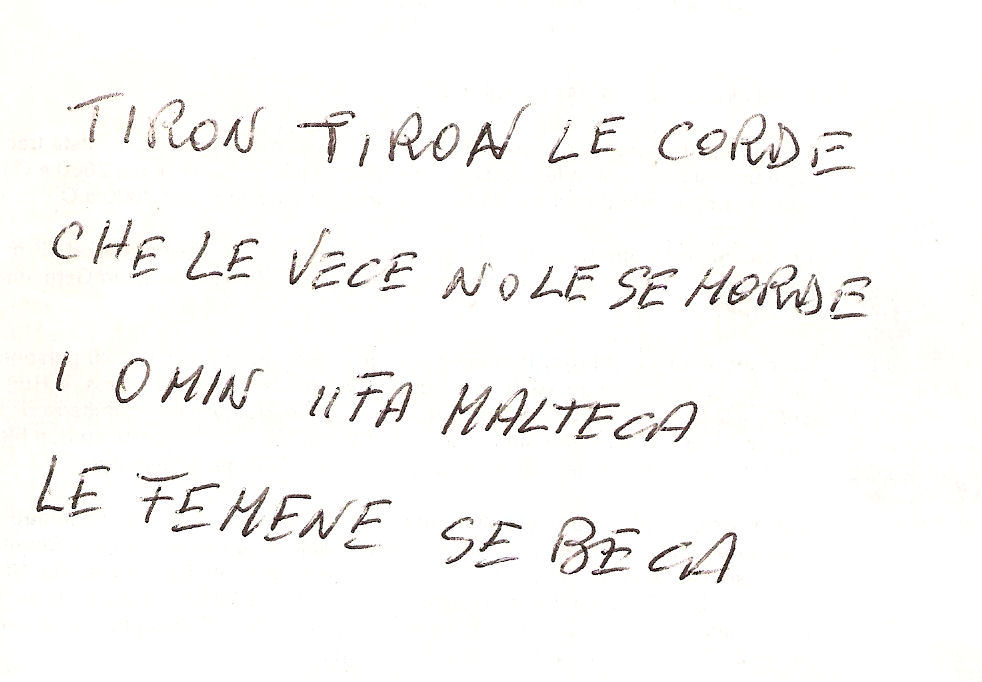 TIRON TIRON LE CORDE
CHE LE VECE NO LE SE MORDE
I OMIN II FA MALTECA
LE FEMENE SE BECA